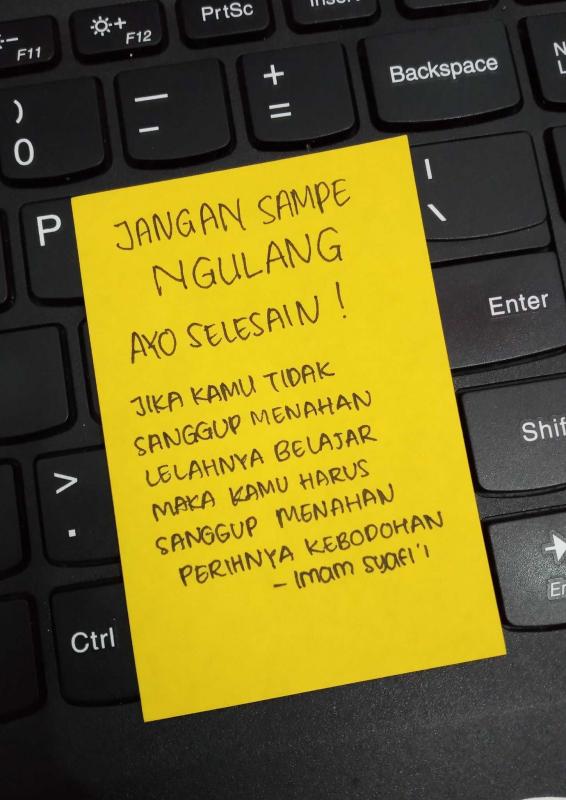 F11
+ F12
PrtSc
Insert
)
0
—
-
+
=
Backspace
P
|
\
Enter
>
.
Ctrl
JANGAN SAMPE
NGULANG
AYO SELESAIN !
JIKA KAMU TIDAK
SANGGUP MENAHAN
LELAHNYA BELAJAR
MAKA KAMU HARUS
SANGGUP MENAHAN
PERIHNYA KEBODOHAN
- Imam Syafi'i